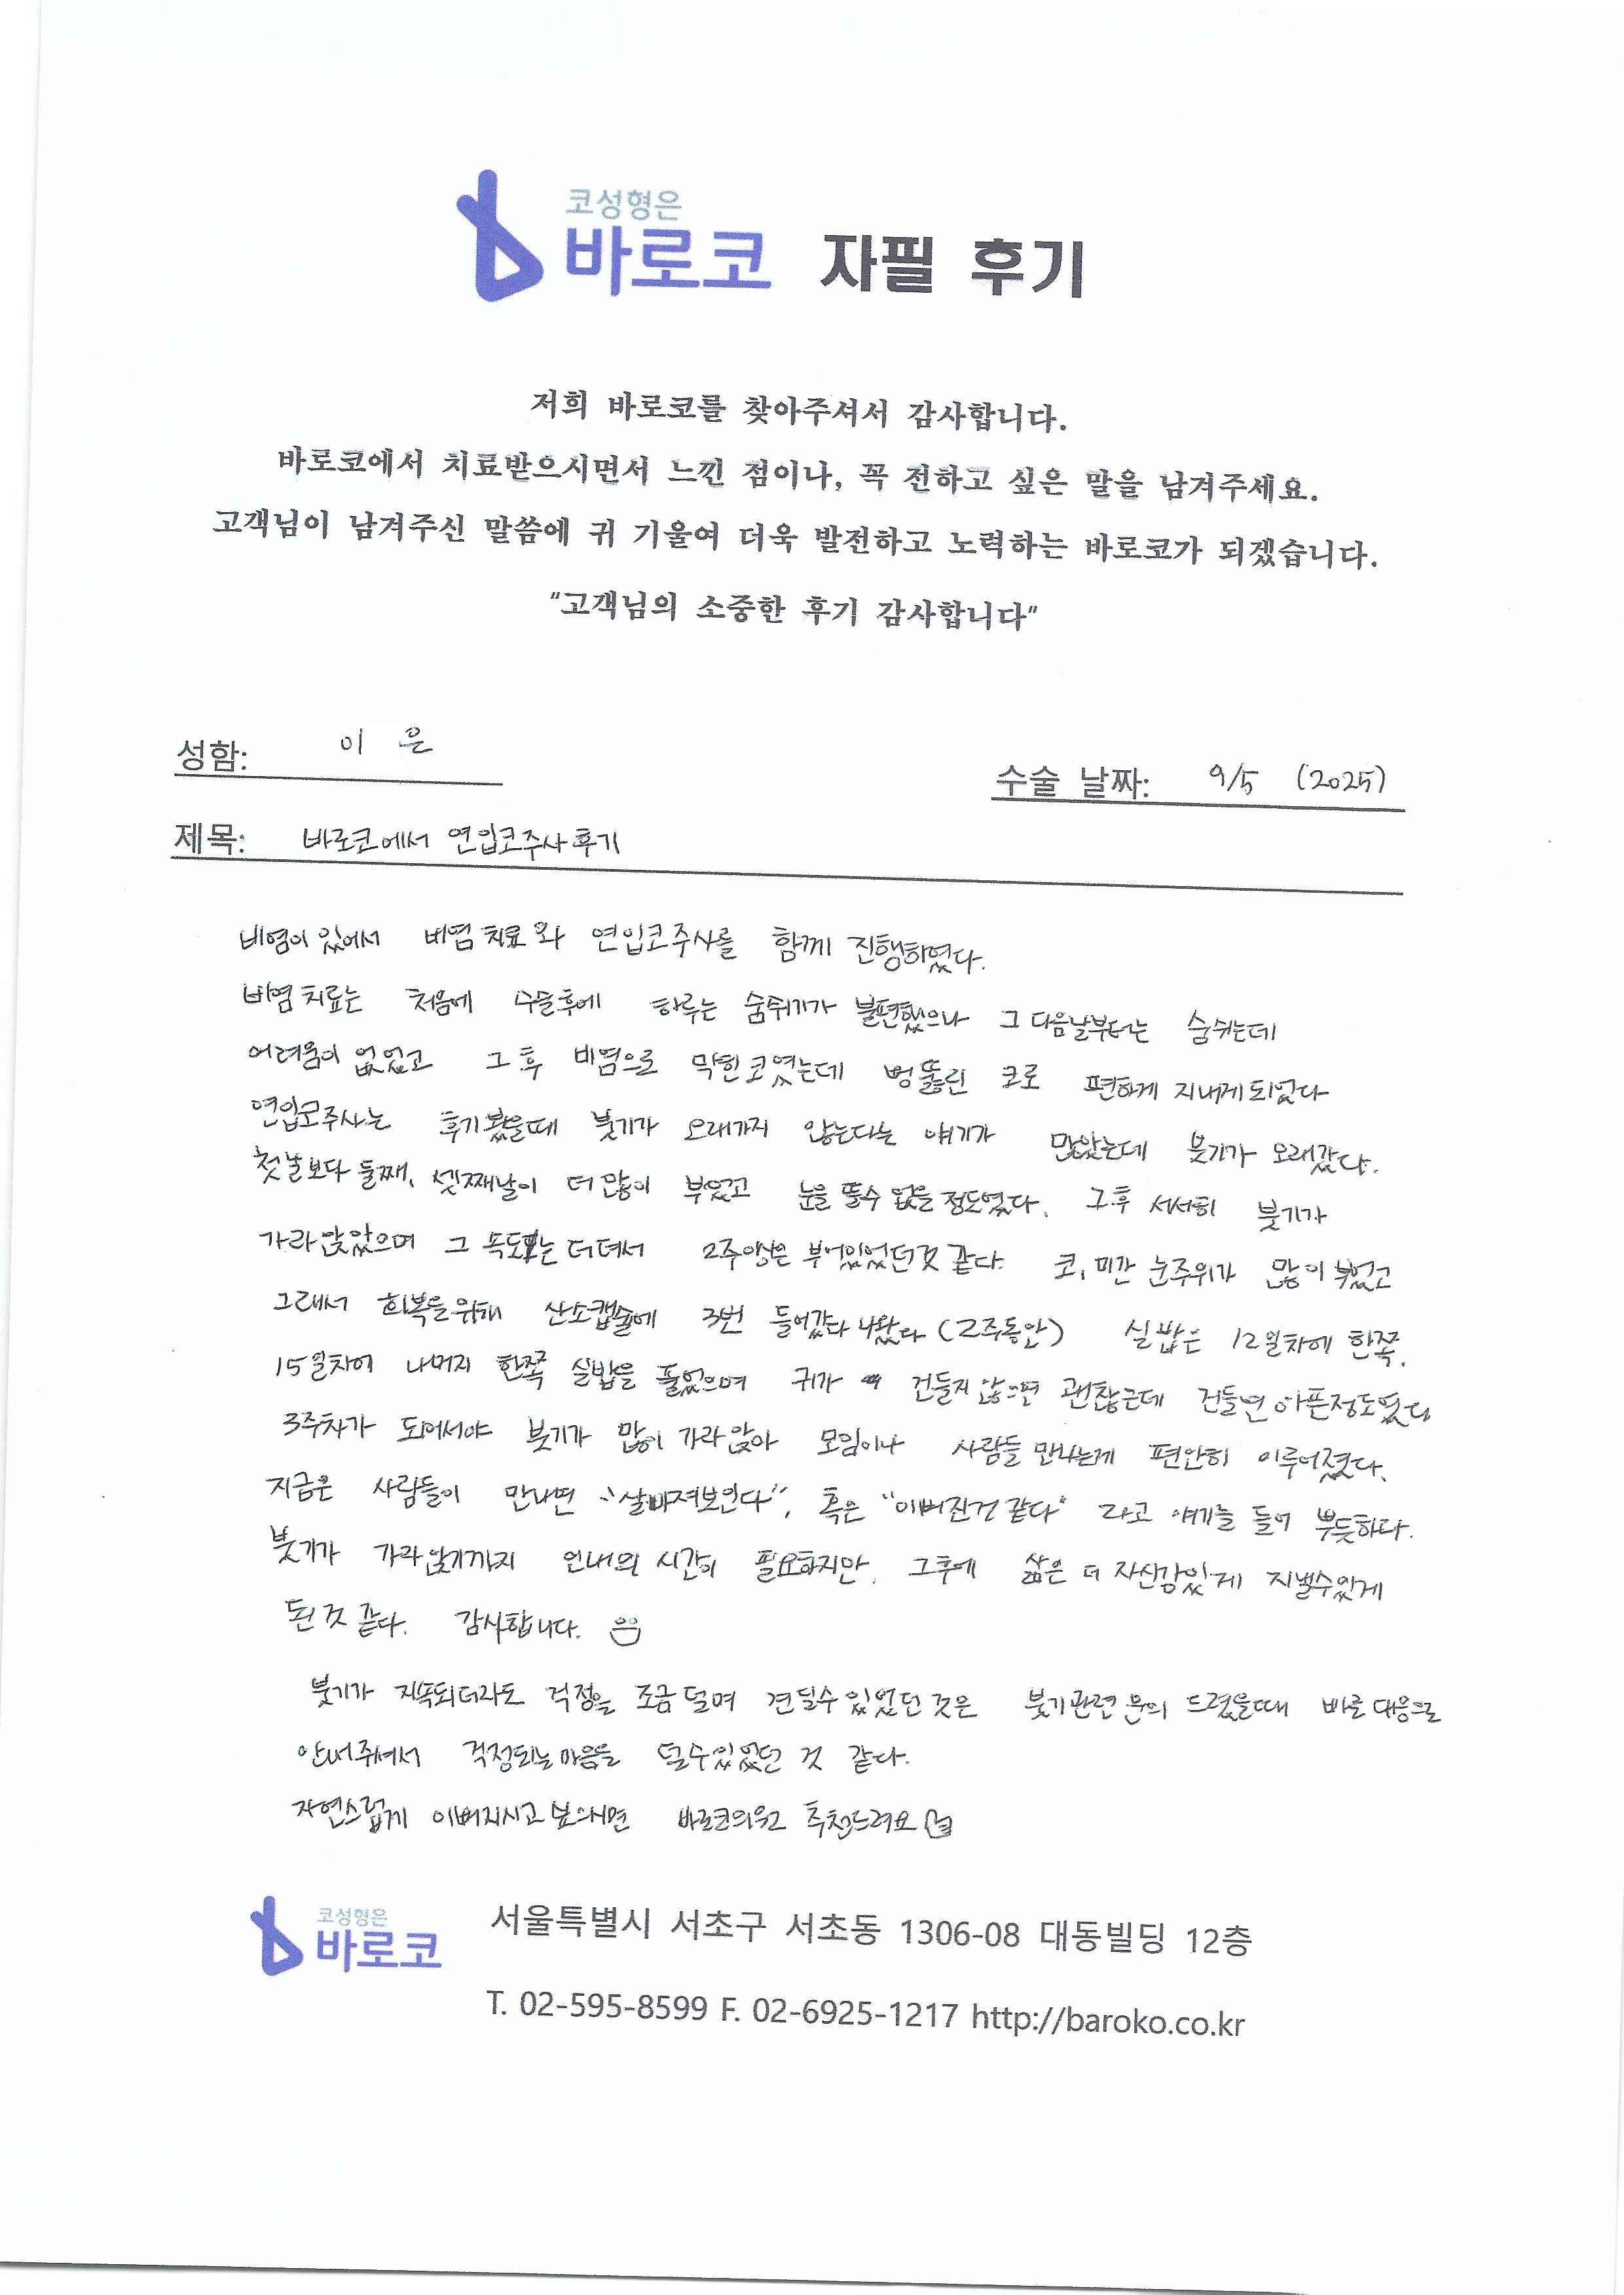 코성형은
바로코 자필 후기
저희 바로코를 찾아주셔서 감사합니다.
바로코에서 치료받으시면서 느낀 점이나, 꼭 전하고 싶은 말을 남겨주세요.
고객님이 남겨주신 말씀에 귀 기울여 더욱 발전하고 노력하는 바로코가 되겠습니다.
"고객님의 소중한 후기 감사합니다"
성함: 이 은
수술 날짜: 9/5 (2025)
제목: 바로코에서 연입코주사 후기
비염이 있어서 비염 치료와 연입코주사를 함께 진행하였다.
비염 치료는 처음에 수술후에 하루는 숨쉬기가 불편했으나 그 다음날부터는 숨쉬는데
어려움이 없었고 그 후 비염으로 막힌 코였는데 뻥뚫린 코로 편하게 지내게 되었다
연입코주사는 후기봤을때 붓기가 오래가지 않는다는 얘기가 많았는데 붓기가 오래갔다.
첫날보다 둘째, 셋째날이 더 많이 부었고 눈을 뜰수 없을 정도였다. 그후 서서히 붓기가
가라앉았으며 그 속도는 더뎌서 2주이상은 부어있었던것 같다. 코, 미간 눈주위가 많이 부었고
그래서 회복을위해 산소캡슐에 3번 들어갔다 나왔다 (2주동안) 실밥은 12일차에 한쪽,
15일차에 나머지 한쪽 실밥을 풀었으며 귀가 건들지 않으면 괜찮은데 건들면 아픈정도였다
3주차가 되어서야 붓기가 많이 가라앉아 모임이나 사람들 만나는게 편안히 이루어졌다.
지금은 사람들이 만나면 "살빠져보인다", 혹은 "이뻐진것 같다" 라고 얘기를 들어 뿌듯하다.
붓기가 가라앉기까지 인내의 시간이 필요하지만, 그후에 삶은 더 자신감있게 지낼수있게
된 것 같다. 감사합니다.
붓기가 지속되더라도 걱정을 조금 덜며 견딜수 있었던 것은 붓기관련 문의 드렸을때 바로 대응으로
안내주셔서 걱정되는 마음을 덜수있었던 것 같다.
자연스럽게 이뻐지시고 싶으시면 바로코의원 추천드려요
코성형은
바로코
서울특별시 서초구 서초동 1306-08 대동빌딩 12층
T. 02-595-8599 F. 02-6925-1217 http://baroko.co.kr